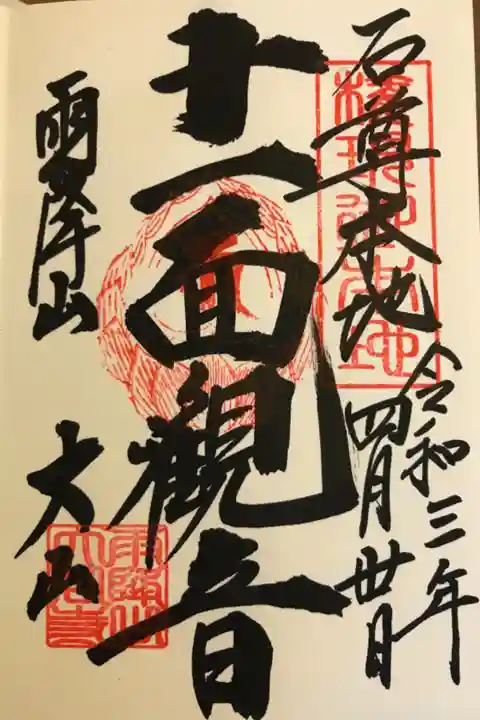 石尊本地
令和三年
四月卅日
十一面観音
雨降山
大山
雨降山
大山寺